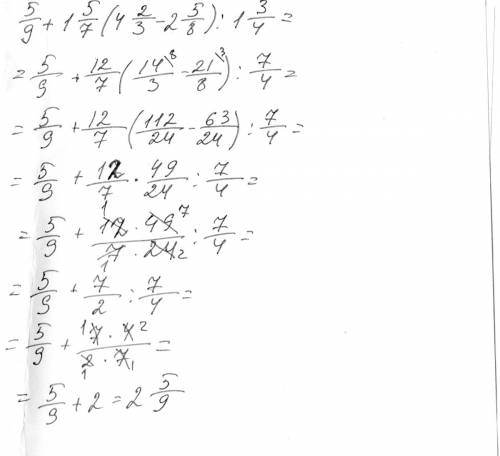 5/9 + 1 5/7 (4 2/3 - 2 5/8) : 1 3/4 =
= 5/9 + 12/7 (14\8/3 - 21\3/8) : 7/4 =
= 5/9 + 12/7 (112/24 - 63/24) : 7/4 =
= 5/9 + 12/7 · 49/24 : 7/4 =
= 5/9 + 1 12 · 49 7/1 7 · 24 2 : 7/4 =
= 5/9 + 7/2 : 7/4 =
= 5/9 + 1 7 · 4 2/1 2 · 7 1 =
= 5/9 + 2 = 2 5/9